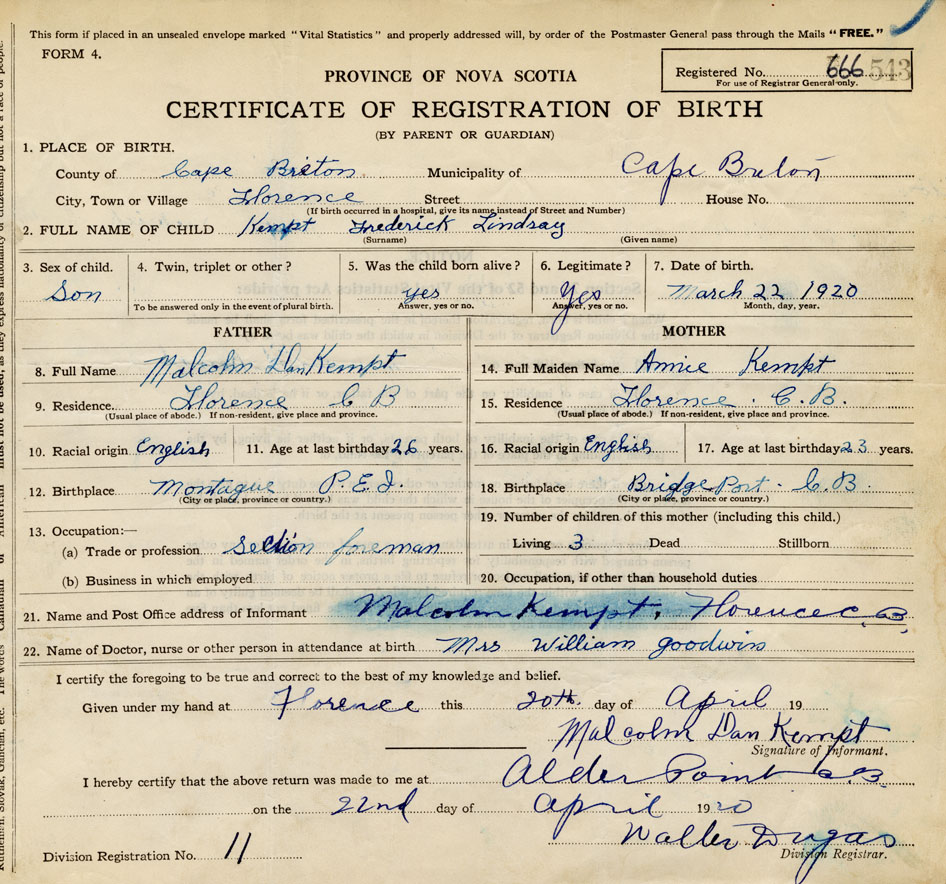 This form if placed in an unsealed envelope marked "Vital Statistics" and properly addressed will, by order of the Postmaster General pass through the Mails "FREE."
FORM 4.
Registered No. 666 543
For use of Registrar General only.
PROVINCE OF NOVA SCOTIA
CERTIFICATE OF REGISTRATION OF BIRTH
(BY PARENT OR GUARDIAN)
1. PLACE OF BIRTH.
County of Cape Breton Municipality of Cape Breton
City, Town or Village Florence Street House No.
(If birth occurred in a hospital, give its name instead of Street and Number)
2. FULL NAME OF CHILD Kempt Frederick Lindsay
(Surname) (Given name)
3. Sex of child. 4. Twin, triplet or other? 5. Was the child born alive? 6. Legitimate? 7. Date of birth.
Son yes Yes March 22 1920
To be answered only in the event of plural birth. Answer, yes or no. Answer, yes or no. Month, day, year.
FATHER MOTHER
8. Full Name Malcolm Dan Kempt 14. Full Maiden Name Annie Kempt
9. Residence. Florence C B 15. Residence Florence . C. B.
(Usual place of abode.) If non-resident, give place and province. (Usual place of abode.) If non-resident, give place and province.
10. Racial origin English 11. Age at last birthday 26 years. 16. Racial origin English 17. Age at last birthday 23 years.
12. Birthplace Montague P.E.I. 18. Birthplace Bridge Port - C.B.
(City or place, province or country.) (City or place, province or country.)
13. Occupation:— 19. Number of children of this mother (including this child.)
(a) Trade or profession section foreman Living 3 Dead Stillborn
(b) Business in which employed 20. Occupation, if other than household duties
21. Name and Post Office address of Informant Malcolm Kempt. Florence C.B.
22. Name of Doctor, nurse or other person in attendance at birth Mrs William goodwin
I certify the foregoing to be true and correct to the best of my knowledge and belief.
Given under my hand at Florence this 20th. day of April 19
Malcolm Dan Kempt
Signature of Informant.
I hereby certify that the above return was made to me at Alder Point C B
on the 22nd day of April 1920
Walter Dugas
Division Registrar.
Division Registration No. 11